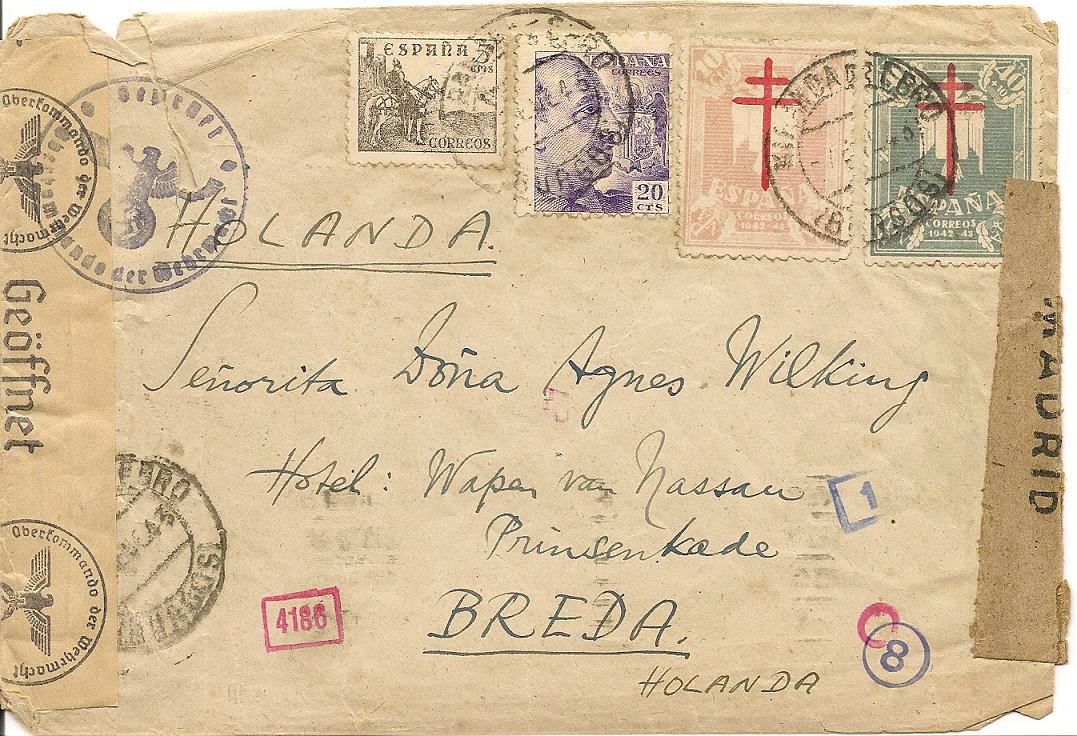 ESPAÑA 5
CTS
CORREOS
ESPAÑA
CORREOS
20
CTS
10
ESPAÑA
CORREOS
1942-43
40
ESPAÑA
CORREOS
1942-43
MIRANDA DE EBRO
(BURGOS)
Oberkommando der Wehrmacht
Geprüft
Oberkommando der Wehrmacht
Geöffnet
Oberkommando der Wehrmacht
HOLANDA.
MADRID
Señorita Doña Agnes Wilking
Hotel: Wapen van Nassau
Prinsenkade
BREDA.
HOLANDA
1
4186
8
EBRO